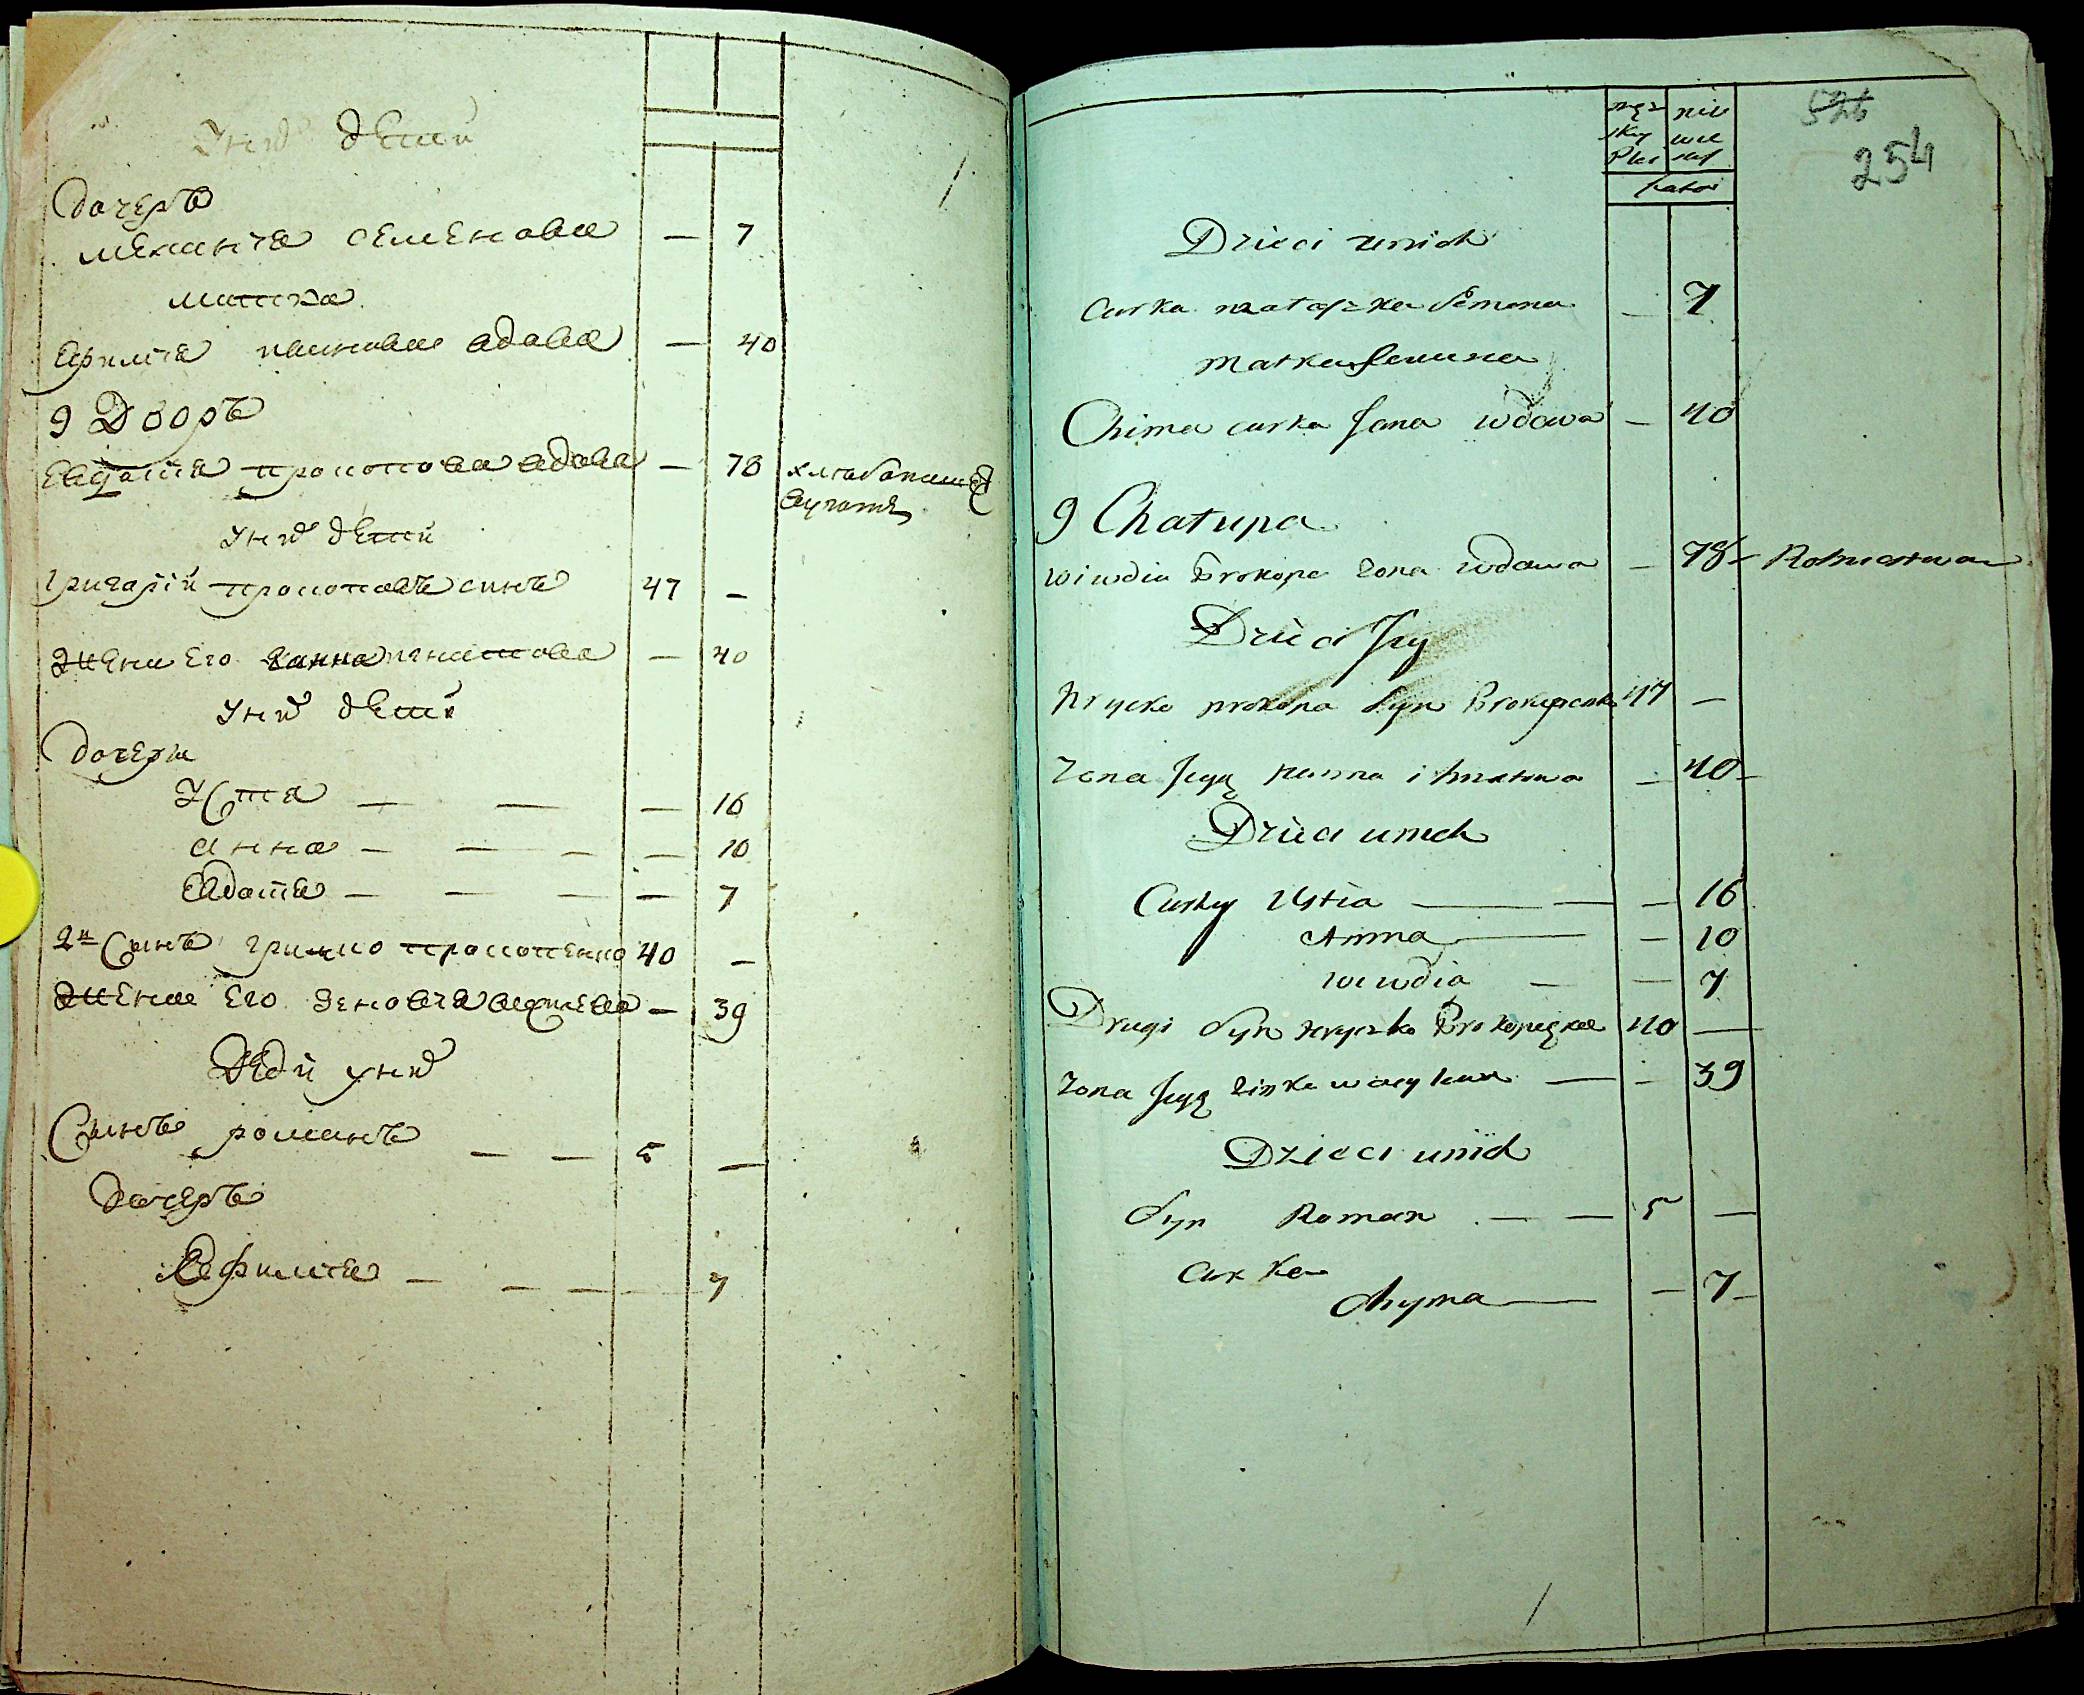 У нихъ дѣтей
Дочеръ
Меланія Семенова — 7
матка
Ефимія Иванова вдова — 40
9 Дворъ
Евдотія Прокопова вдова — 78
У нихъ дѣтей
Григорій Прокоповъ синъ 47 —
Жена Его Ганна Игнатова — 40
У нихъ дѣтей
Дочери
Устя — — — 16
Анна — — — — 10
Евдотія — — — — 7
2й Синъ Грицко Прокопенко 40 —
Жена Его Зеновія — 39
Дѣти у нихъ
Синъ Романъ — — 5 —
Дочеръ
Ефимія — — — 7
męz skij Plci
niewie
Latai
526
254
Dzieci unich
Curka Semena — 7
Matka Semena
Chima curka Jana wdowa — 40
9 Chatupa
wiwdia Prokopa zona wdowa — 78 — Rolnictwa
Dzieci Jey
Hrycko prokopa Syn 47 —
Zona Jegą Hanna ihnatowa — 40 —
Dzieci unich
Curky Ustia — — — 16
Anna — — 10
wiwdia — — 7
Drugi Syn Hryczko 40 —
Zona Jegą Zinka — — 39
Dzieci unich
Syn Roman — — 5 —
Curka
Chyma — — 7 —